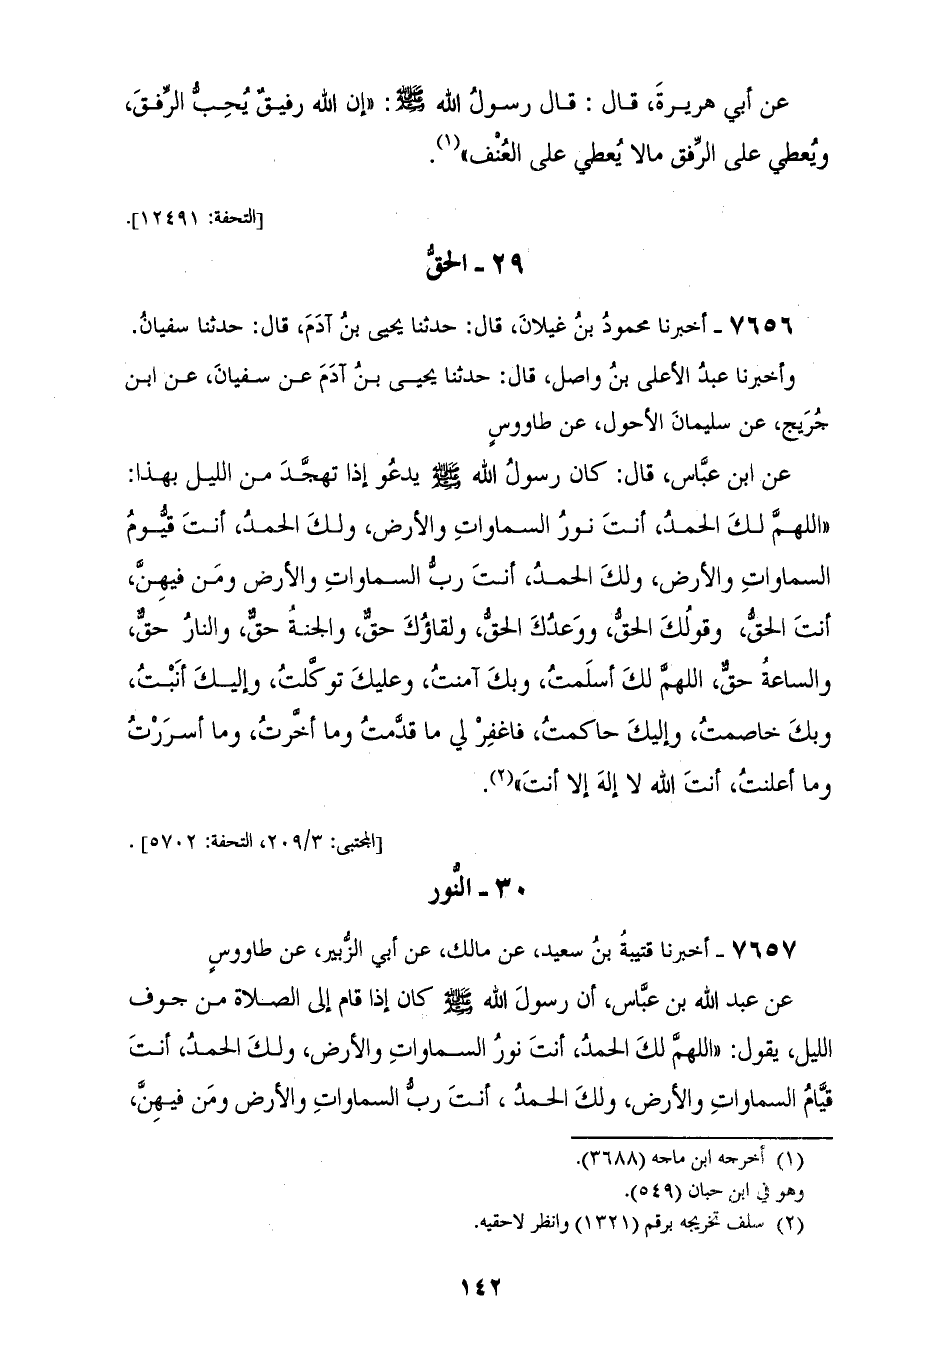 عن أبي هريرةَ، قال : قال رسولُ الله ﷺ : «إن الله رفيقٌ يُحِبُّ الرِّفقَ،
ويُعطي على الرِّفق مالا يُعطي على العُنْف»(١).
[التحفة: ١٢٤٩١].
٢٩ - الحقُّ
٧٦٥٦ - أخبرنا محمودُ بنُ غيلانَ، قال: حدثنا يحيى بنُ آدَمَ، قال: حدثنا سفيانُ.
وأخبرنا عبدُ الأعلى بنُ واصل، قال: حدثنا يحيى بنُ آدَمَ عن سفيانَ، عن ابن
جُرَيج، عن سليمانَ الأحول، عن طاووسٍ
عن ابن عبَّاس، قال: كان رسولُ الله ﷺ يدعُو إذا تهجَّدَ من الليل بهذا:
«اللهمَّ لكَ الحمدُ، أنتَ نورُ السماواتِ والأرض، ولكَ الحمدُ، أنتَ قيُّومُ
السماواتِ والأرض، ولكَ الحمدُ، أنتَ ربُّ السماواتِ والأرض ومَن فيهِنَّ،
أنتَ الحقُّ، وقولُكَ الحقُّ، ووَعدُكَ الحقُّ، ولقاؤُكَ حقٌّ، والجنةُ حقٌّ، والنارُ حقٌّ،
والساعةُ حقٌّ، اللهمَّ لكَ أسلَمتُ، وبكَ آمنتُ، وعليكَ توكَّلتُ، وإليكَ أنَبْتُ،
وبكَ خاصمتُ، وإليكَ حاكمتُ، فاغفِرْ لي ما قدَّمتُ وما أخَّرتُ، وما أسرَرْتُ
وما أعلنتُ، أنتَ الله لا إلهَ إلا أنتَ»(٢).
[المجتبى: ٢٠٩/٣، التحفة: ٥٧٠٢] .
٣٠ - النُّور
٧٦٥٧ - أخبرنا قتيبةُ بنُ سعيد، عن مالك، عن أبي الزُّبير، عن طاووسٍ
عن عبد الله بن عبَّاس، أن رسولَ الله ﷺ كان إذا قام إلى الصلاة من جوف
الليل، يقول: «اللهمَّ لكَ الحمدُ، أنتَ نورُ السماواتِ والأرض، ولكَ الحمدُ، أنتَ
قيَّامُ السماواتِ والأرض، ولكَ الحمدُ ، أنتَ ربُّ السماواتِ والأرض ومَن فيهِنَّ،
(١) أخرجه ابن ماجه (٣٦٨٨).
وهو في ابن حبان (٥٤٩).
(٢) سلف تخريجه برقم (١٣٢١) وانظر لاحقيه.
١٤٢